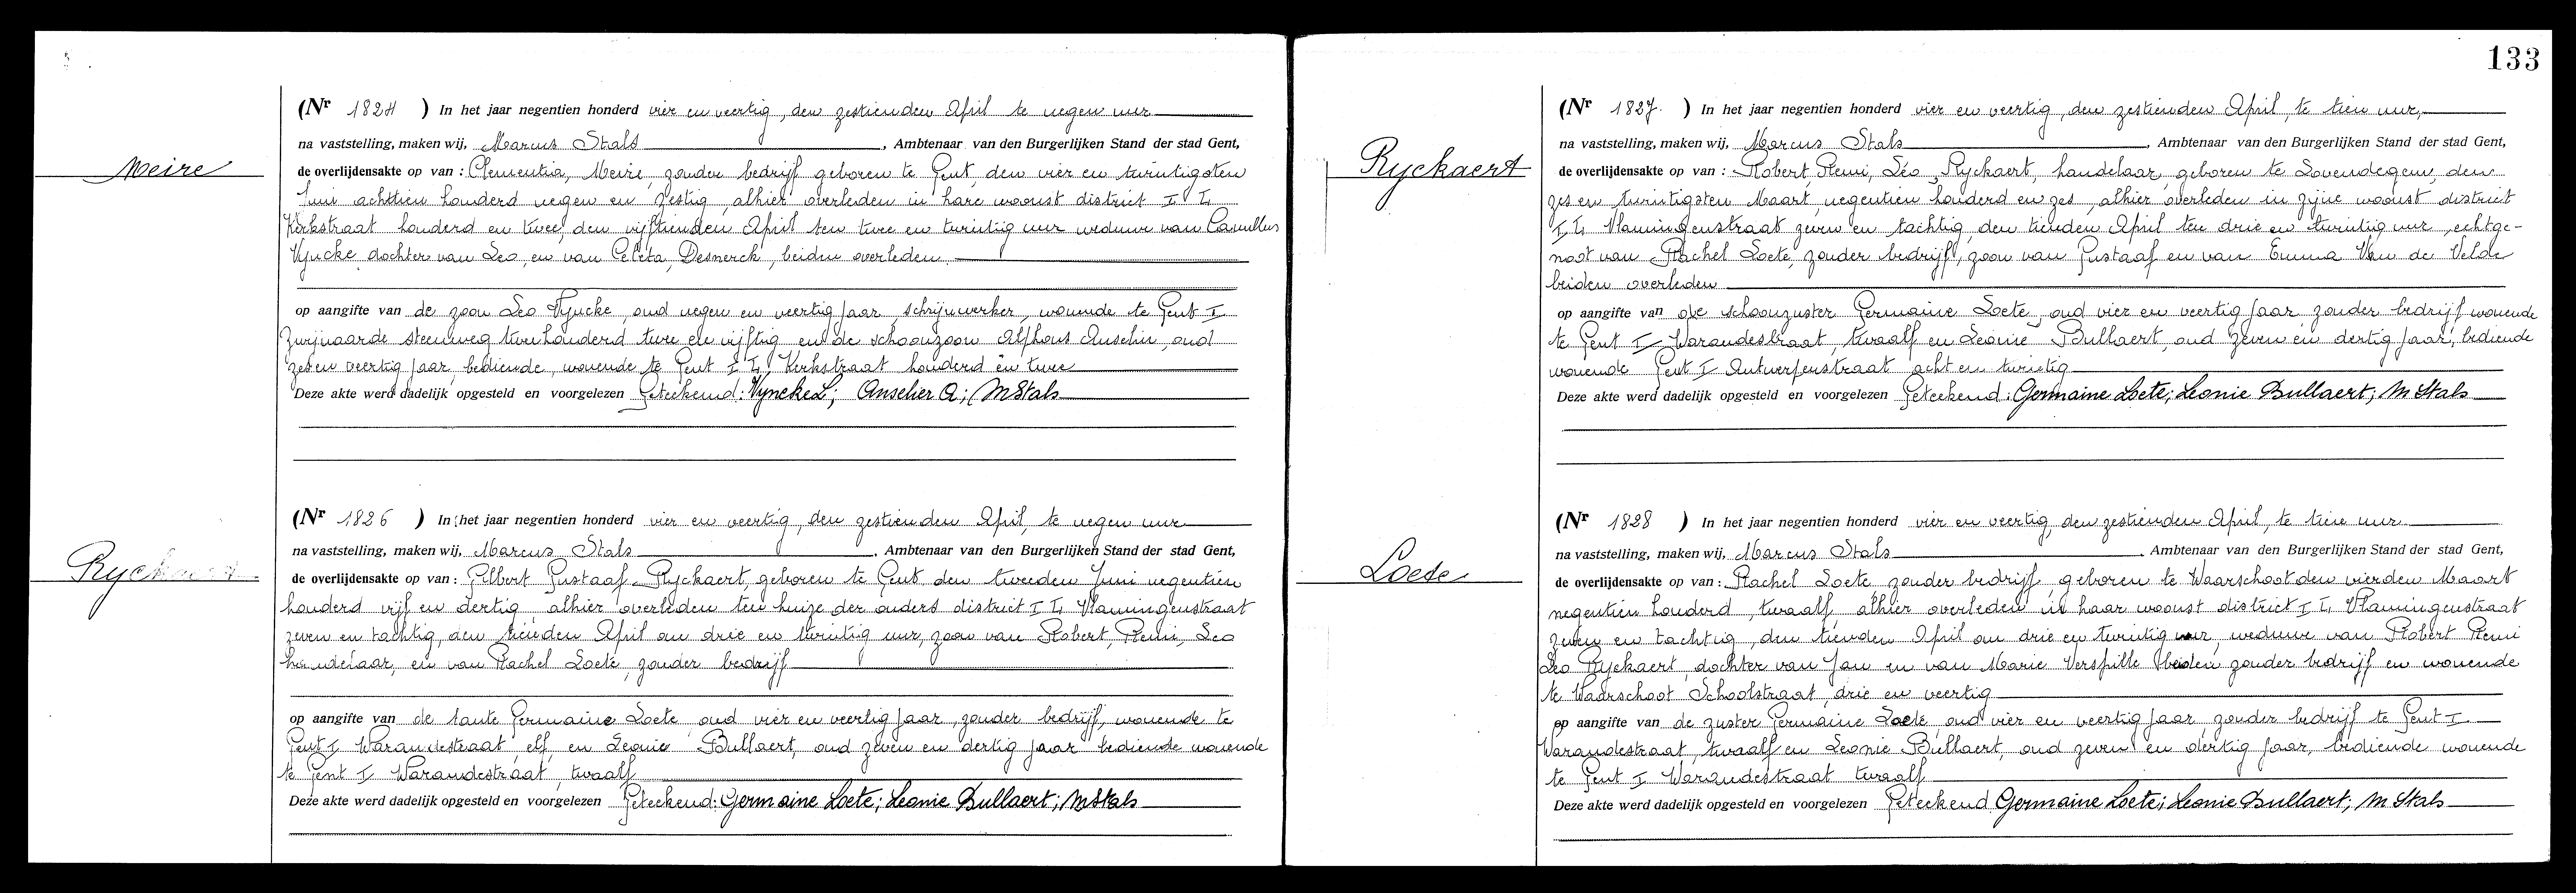 Meire
(Nr 1824 ) In het jaar negentien honderd vier en veertig, den zestienden April te negen uur
na vaststelling, maken wij, Marcus Stals, Ambtenaar van den Burgerlijken Stand der stad Gent,
de overlijdensakte op van : Clementia, Meire, zonder bedrijf geboren te Gent, den vier en twintigsten
Juni achttien honderd negen en zestig, alhier overleden in hare woonst district I
Kerkstraat honderd en twee, den vijftienden April ten twee en twintig uur weduwe van Camillus
Vyncke dochter van Leo, en van Desnerck, beiden overleden
op aangifte van de zoon Leo Vyncke, oud negen en veertig jaar, schrijnwerker, wonende te Gent I
Zwijnaarde steenweg tweehonderd twee en vijftig en de schoonzoon Alphons Anselin, oud
zes en veertig jaar, bediende, wonende te Gent I Kerkstraat honderd en twee
Deze akte werd dadelijk opgesteld en voorgelezen Geteekend: Vyncke L; A; M Stals
Ryckaert
(Nr 1826 ) In het jaar negentien honderd vier en veertig, den zestienden April, te negen uur
na vaststelling, maken wij, Marcus Stals, Ambtenaar van den Burgerlijken Stand der stad Gent,
de overlijdensakte op van : Gilbert Gustaaf Ryckaert, geboren te Gent den tweeden Juni negentien
honderd vijf en dertig alhier overleden ten huize der ouders district I Vlamingenstraat
zeven en tachtig, den tienden April om drie en twintig uur, zoon van Robert, Remi, Leo
handelaar, en van Rachel Loete, zonder bedrijf
op aangifte van de tante Germaine Loete oud vier en veertig jaar, zonder bedrijf, wonende te
Gent I Warandestraat elf en Leonie Bullaert, oud zeven en dertig jaar bediende wonende
te Gent I Warandestraat, twaalf
Deze akte werd dadelijk opgesteld en voorgelezen Geteekend: Germaine Loete; Leonie Bullaert; M Stals
133
Ryckaert
(Nr 1827. ) In het jaar negentien honderd vier en veertig, den zestienden April, te tien uur,
na vaststelling, maken wij, Marcus Stals, Ambtenaar van den Burgerlijken Stand der stad Gent,
de overlijdensakte op van : Robert, Remi, Léo, Ryckaert, handelaar, geboren te Lovendegem, den
zes en twintigsten Maart, negentien honderd en zes, alhier overleden in zijne woonst district
I Vlamingenstraat zeven en tachtig, den tienden April ten drie en twintig uur, echtge-
noot van Rachel Loete, zonder bedrijf, zoon van Gustaaf en van Emma Van de Velde
beiden overleden
op aangifte van de schoonzuster Germaine Loete, oud vier en veertig jaar, zonder bedrijf wonende
te Gent I Warandestraat, twaalf en Leonie Bullaert, oud zeven en dertig jaar, bediende
wonende Gent I Antwerpenstraat acht en twintig
Deze akte werd dadelijk opgesteld en voorgelezen Geteekend: Germaine Loete; Leonie Bullaert; M Stals
Loete
(Nr 1828 ) In het jaar negentien honderd vier en veertig, den zestienden April, te tien uur.
na vaststelling, maken wij, Marcus Stals, Ambtenaar van den Burgerlijken Stand der stad Gent,
de overlijdensakte op van : Rachel Loete zonder bedrijf, geboren te Waarschoot den vierden Maart
negentien honderd, twaalf, alhier overleden in haar woonst district I Vlamingenstraat
zeven en tachtig, den tienden April om drie en twintig uur, weduwe van Robert Remi
Leo Ryckaert, dochter van Jan en van Marie Verspille beiden zonder bedrijf en wonende
te Waarschoot Schoolstraat, drie en veertig
op aangifte van de zuster Germaine Loete, oud vier en veertig jaar, zonder bedrijf te Gent I
Warandestraat, twaalf en Leonie Bullaert, oud zeven en dertig jaar, bediende wonende
te Gent I Warandestraat twaalf
Deze akte werd dadelijk opgesteld en voorgelezen Geteekend Germaine Loete; Leonie Bullaert; M Stals